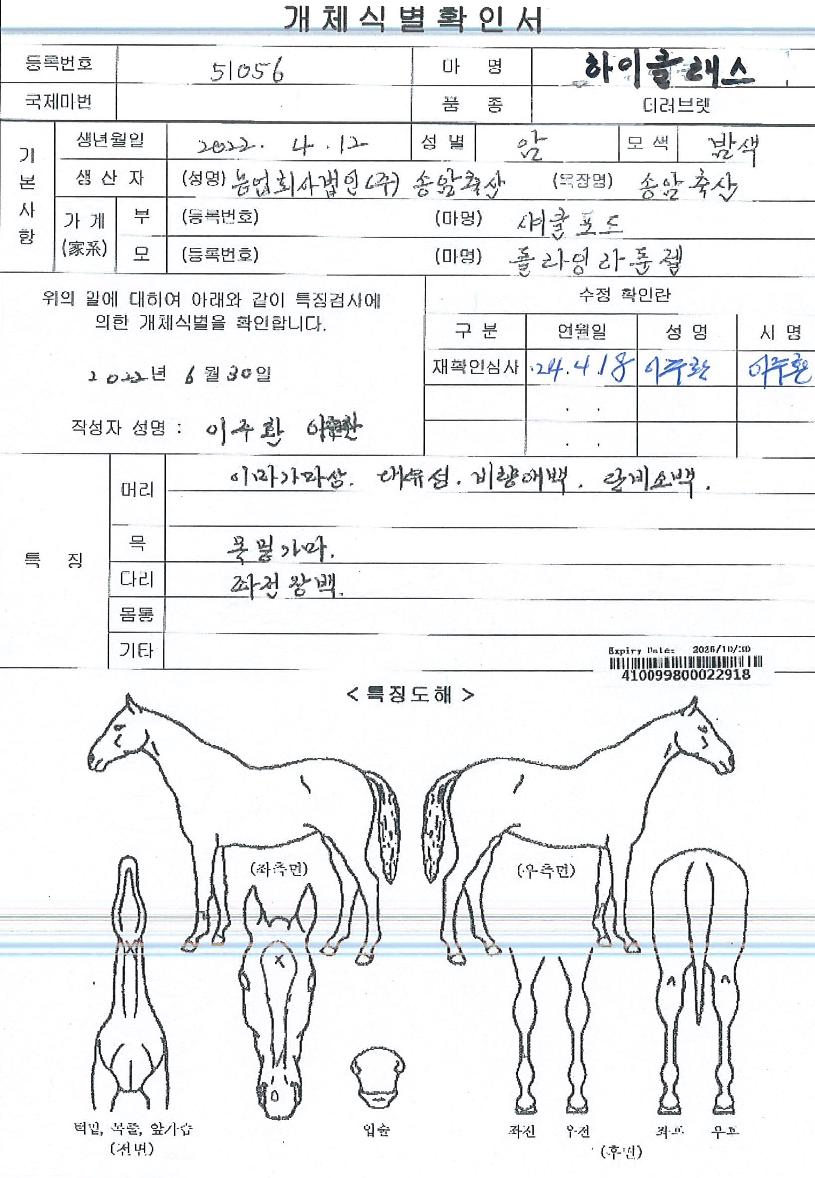 개체식별확인서
등록번호 51056 마 명 하이클래스
국제미번 품 종 더러브렛
기본사항
생년월일 2022. 4. 12 성 별 암 모 색 밤색
생 산 자 (성명) 농업회사법인(주) 송암축산 (목장명) 송암축산
가 계 (家系) 부 (등록번호) (마명) 셔클포드
모 (등록번호) (마명) 플라잉라툰젤
위의 말에 대하여 아래와 같이 특징검사에
의한 개체식별을 확인합니다.
2022년 6월 30일
작성자 성명 : 이주환
수정 확인란
구 분 연월일 성 명 서 명
재확인심사 '24.4.18 이주환 이주환
. .
. .
특 징
머리 이마가마상. 대유성. 비량애백. 단비소백.
목 목밑가마.
다리 좌전장백.
몸통
기타
Expiry Date: 2026/10/30
410099800022918
< 특징도해 >
(좌측면) (우측면)
턱밑, 목줄, 앞가슴
(전면)
입술
좌전 우전 좌후 우후
(후면)